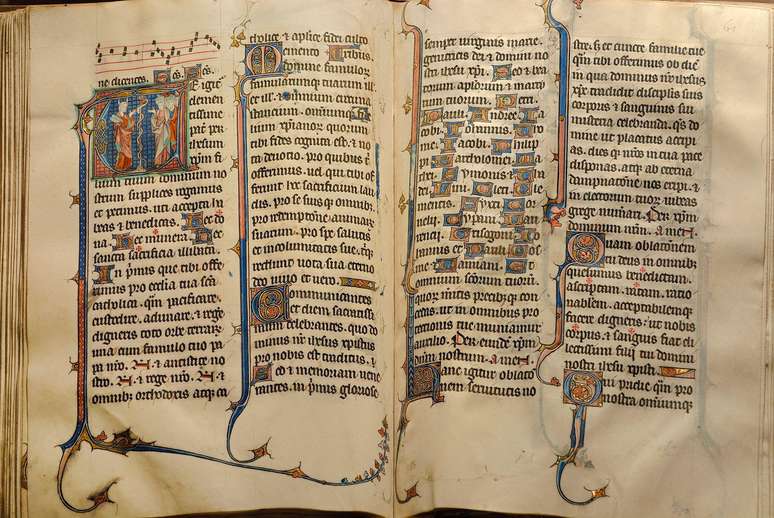 ne dicentes. Scs. Scs.
TE igit᷑
clemen
tissime
pat᷑ per
ihesum
xp̄m fi
lium tuum dominum no
strum supplices rogamus
et petimus. uti accepta ha
beas & benedicas. hec do
na. hec munera. hec
sancta sacrificia illibata.
In p̄mis que tibi offe
rimus pro ecclia tua sca
catholica. qm̄ pacificare.
custodire. adunare. & rege
digneris toto orbe terrar̄.
una cum famulo tuo pa
pa nr̄o. N. & antistite no
stro. N. & rege nr̄o. N. &
omnibꝫ orthodoxis atqꝫ ca
tholice & aplice fidei culto
Memento ribus.
domine famulor̄
famularumqꝫ tuarum ill̄.
et ill̄. & omnium circum
stancium. omniumqꝫ fide
lium xpianor̄ quorum
tibi fides cognita est. & no
ta deuotio. pro quibus t̄
offerimus. uel qui tibi of
ferunt hoc sacrificium lau
dis. pro se suisqꝫ omnibꝫ.
pro redemptōne animarū
suarum. pro spe salutis
et incolumitatis sue. tibiqꝫ
reddunt uota sua eterno
deo uiuo et uero.
Communicantes
et diem sacratissi
mum celebrantes. quo do
minus nr̄ ihesus xpistus
pro nobis est traditus. &
Sed & memoriam uene
rantes. in p̄mis gloriose
semper uirginis marie.
genitricis dei & domini no
stri ihesu xp̄i. Sed & bea
torum aplōrum & marty
rum tuorum. Petri.
Pauli. Andree. Ja
cobi. Johannis. Tho
me. Jacobi. Philip
pi. Bartholomei. Ma
thei. Symonis. & Tha
dei. Lini. Cleti. Cle
mentis. Syxti. Cor
nelii. Cypriani. Lau
rencii. Grisogoni. Jo
hannis et Pauli. Cos
me & Damiani. Et
omnium scorum tuorū.
quor̄ mitis precibꝫqꝫ con
cedas. ut in omnibus pro
tectionis tue muniamur
auxilio. Per eundē xp̄m
dn̄m nostrum. amen.
Hanc igitur oblatō
nem seruitutis no
stre. sꝫ et cuncte familie tue
qm̄ tibi offerimus ob diē
in qua dominus nr̄ ihesus
xp̄c tradidit discipulis suis
corporis & sanguinis sui
misteria celebranda. qs do
mine ut placatus accipi
as. diesqꝫ nr̄os in tua pace
disponas. atqꝫ ab eterna
dampnatōne nos eripi. &
in electorum tuor̄ iubeas
grege numāri. Per xp̄m
dominum nrm̄. amen.
Quam oblatōnem
tu deus in omnibꝫ
quesumus benedictam.
ascriptam. ratam. ratio
nabilem. acceptabilemqꝫ
facere digneris. ut nobis
corpus. & sanguis fiat di
lectissimi filii tui domini
nostri ihesu xpisti.
Qui pridie qm̄ pro
nostra omniumqꝫ